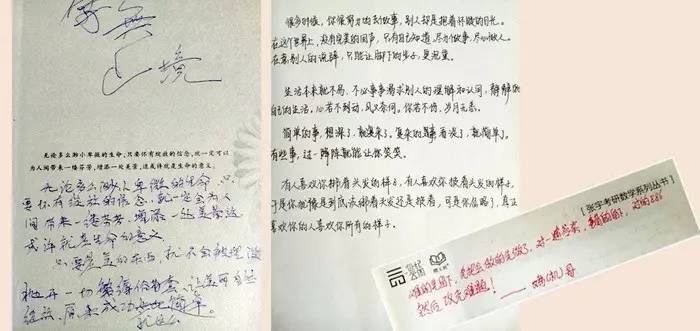 境
无论多么渺小卑微的生命,只要怀有绽放的信念,就一定可以
为人间带来一缕芬芳,增添一处美景,这或许就是生命的意义。
无论多么渺小卑微的生命 只
要怀有绽放的信念,就一定会为人
间带来一缕芬芳,增添一处美景这
或许就是生命的意义
只要是美的东西 就不会被埋没
抛开一切
原来成功 简单。
很多时候,你很努力的去做事,别人却是抱着怀疑的目光。
在这个世界上,没有完美的回声,只有自己知道,尽心做事,尽心做人。
在意别人的说辞,只能让脚下的步子,更沉重。
生活本来就不易,不必事事渴求别人的理解和认同,静静的
自己的生活。心若不动,风又奈何。你若不伤,岁月无恙。
简单的事,想深了,就复杂了。复杂的事看淡了,就简单了。
有些事,过一阵陈就能让你笑笑。
有人喜欢你绑着头发的样子,有人喜欢你披着头发的样子,
于是你犹豫是到底去绑着头发还是披着,可是你忘了,真正
喜欢你的人喜欢你所有的样子。
[张宇考研数学系列丛书]
难的先留下,先把会做的先做了,对一题
然后攻克难题!——